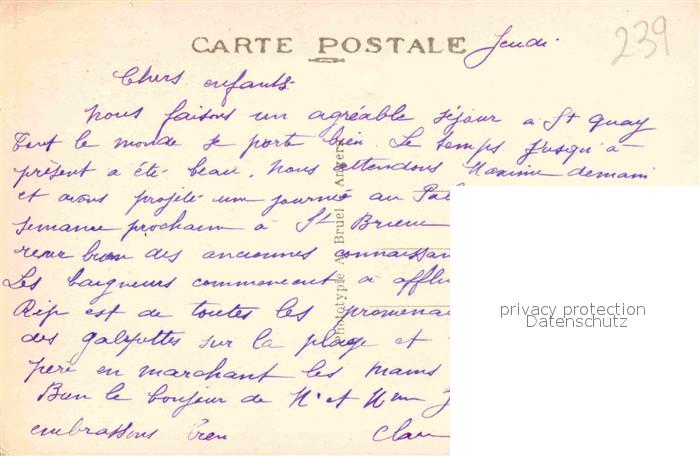 239
CARTE POSTALE Jeudi
Chers enfants
nous faisons un agréable séjour à St Quay
Tout le monde se porte bien. Le temps jusqu'à
présent a été beau. nous attendons Maxime demain
et avons projeté une journée au
semaine prochaine à St Brieuc
bien des anciennes connaissan
Les baigneurs commencent à afflu
Rip est de toutes les promena
des galipettes sur la plage et
père en marchant les mains
Bien le bonjour de Mr et Mme
embrassons bien
Phototypie A. Bruel Angers
privacy protection
Datenschutz